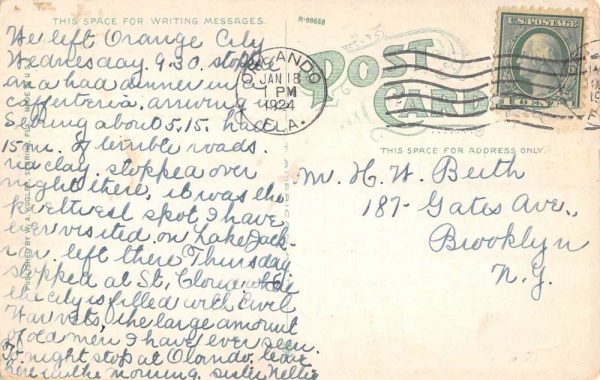 THIS SPACE FOR WRITING MESSAGES.
R-88668
We left Orange City
Wednesday 9.30. stopped
and had dinner in a
caffeteria. arriving in
Sebring about 5.15. had
15 mi. of terrible roads.
red clay. stopped over
night there, it was the
prettiest spot I have
ever visited, on Lake Jack-
son. left there Thursday
stopped at St, Cloud while
the city is filled with Civil
War vets, the large amount
of old men I have ever seen.
To night stop at Olorndo. leave
here in the morning. sister Nellie
POST
CARD
ORLANDO
JAN 18
1 PM
1924
FLA.
U.S. POSTAGE
1 CENT 1
THIS SPACE FOR ADDRESS ONLY.
Mr. H. W. Beith
187- Gates Ave.,
Brooklyn
N.Y.